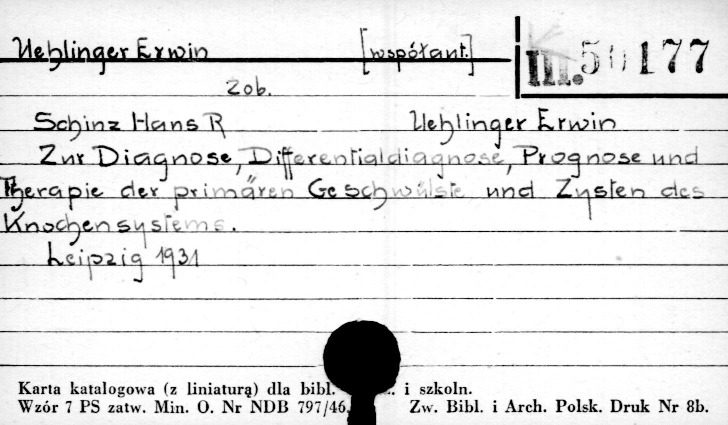 Uehlinger Erwin [współaut.] III. 50177
zob.
Schinz Hans R Uehlinger Erwin
Zur Diagnose, Differentialdiagnose, Prognose und
Therapie der primären Geschwülste und Zysten des
Knochensystems.
Leipzig 1931
Karta katalogowa (z liniaturą) dla bibl. i szkoln.
Wzór 7 PS zatw. Min. O. Nr NDB 797/46, Zw. Bibl. i Arch. Polsk. Druk Nr 8b.